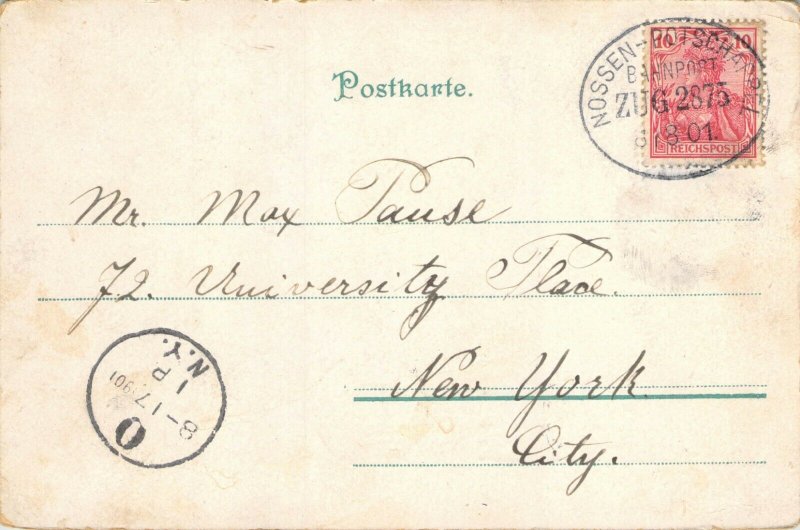 Postkarte.
10
NOSSEN-POTSCHAPPEL
BAHNPOST
ZUG 2875
8 01.
REICHSPOST
Mr. Max Pause
72. University Place.
New York
City.
N.Y.
1 P
8-17 1901
O